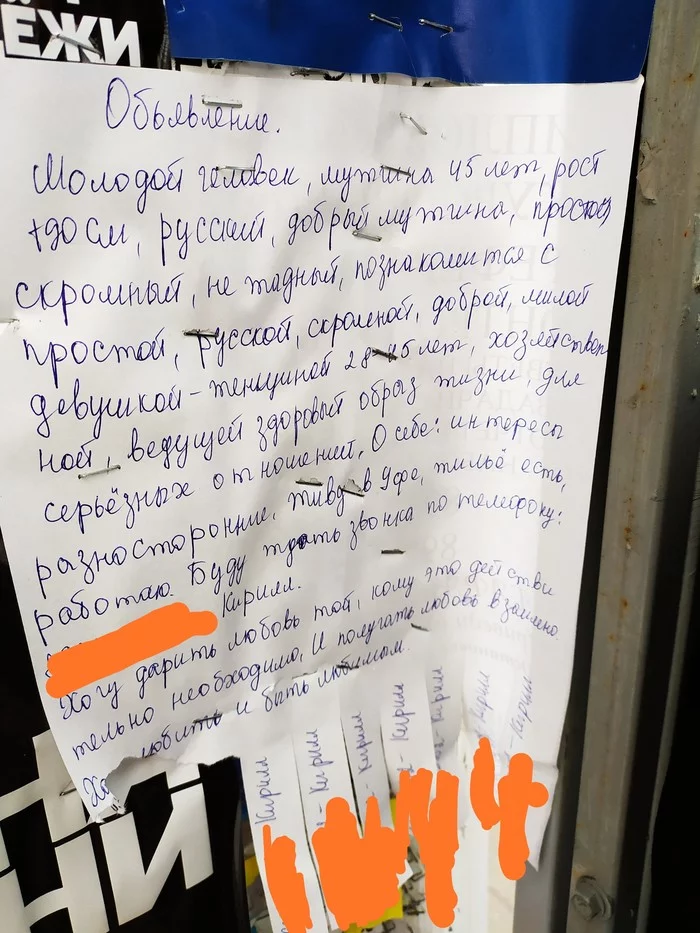 ЁЖИ
Обьявление.
Молодой человек, мужчина 45 лет, рост
190 см, русский, добрый мужчина, простой,
скромный, не жадный, познакомится с
простой, русской, скромной, доброй, милой
девушкой-женщиной 28-45 лет, хозяйствен
ной, ведущей здоровый образ жизни, для
серьёзных отношений. О себе: интересы
разносторонние, живу в Уфе, жильё есть,
работаю. Буду ждать звонка по телефону:
Кирилл.
Хочу дарить любовь той, кому это действи
тельно необходимо. И получать любовь взаимно.
любить и быть любимым.
Кирилл
- Кирилл
- Кирилл
- Кирилл
- Кирилл
Кирилл
- Кирилл
НИ